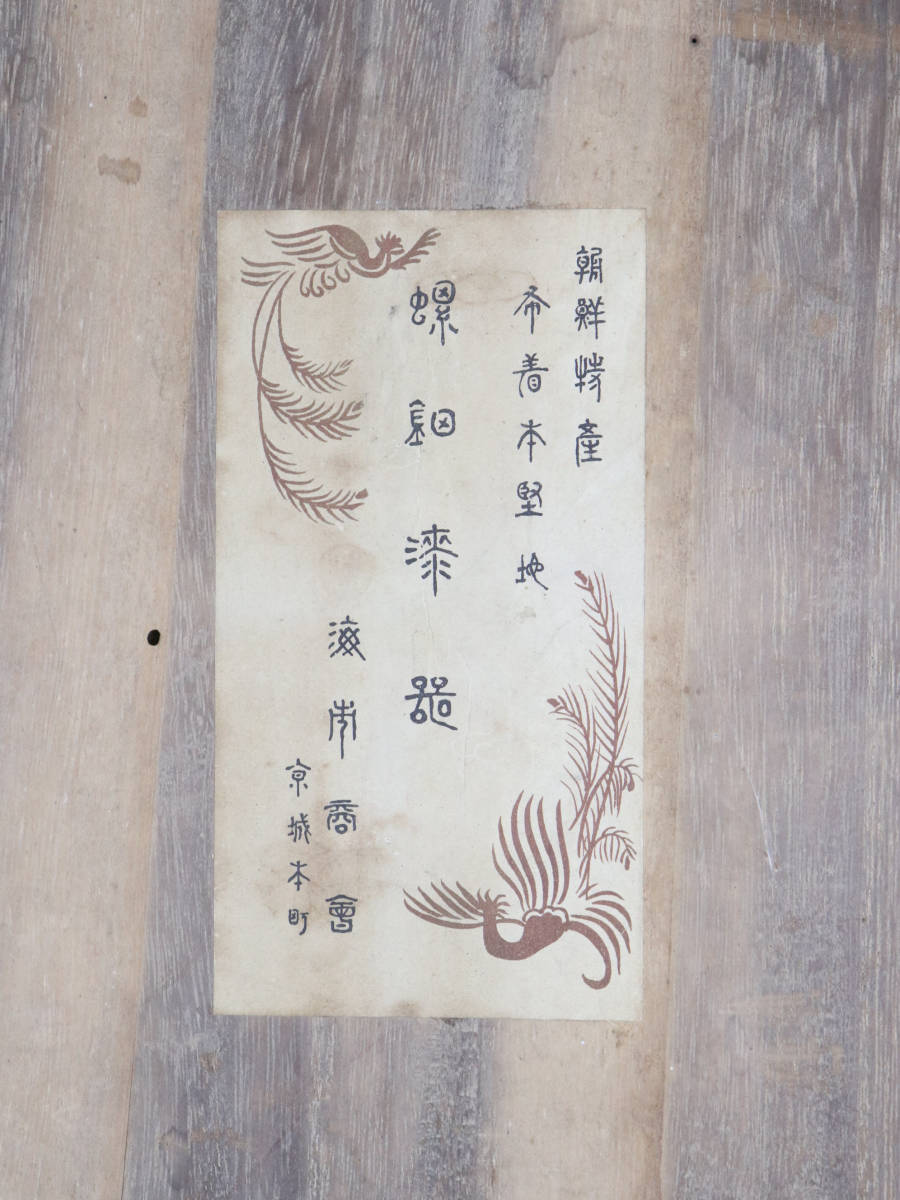 朝鮮特產
布着本堅地
螺鈿漆器
海市商會
京城本町